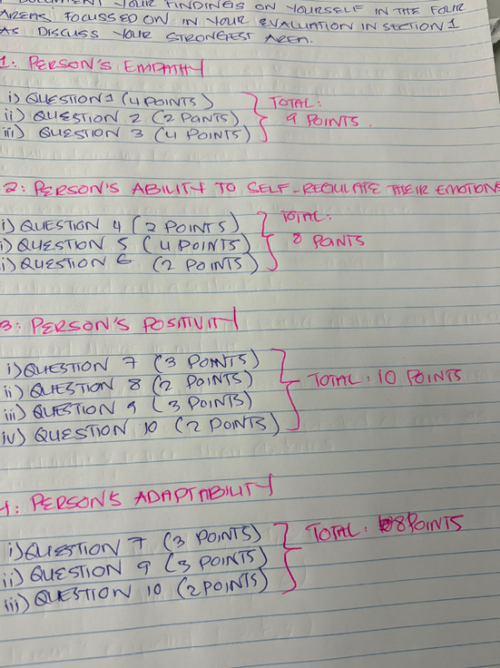 DOCUMENT YOUR FINDINGS ON YOURSELF IN THE FOUR
AREAS FOCUSSED ON IN YOUR EVALUATION IN SECTION 1
AS DISCUSS YOUR STRONGEST AREA.
1: PERSON'S EMPATHY
i) QUESTION 1 (4 POINTS)
ii) QUESTION 2 (2 POINTS)
iii) QUESTION 3 (4 POINTS)
TOTAL:
9 POINTS.
2: PERSON'S ABILITY TO SELF-REGULATE THEIR EMOTIONS
i) QUESTION 4 (2 POINTS)
i) QUESTION 5 (4 POINTS)
i) QUESTION 6 (2 POINTS)
TOTAL:
8 POINTS
3: PERSON'S POSITIVITY
i) QUESTION 7 (3 POINTS)
ii) QUESTION 8 (2 POINTS)
iii) QUESTION 9 (3 POINTS)
iv) QUESTION 10 (2 POINTS)
TOTAL: 10 POINTS
4: PERSON'S ADAPTABILITY
i) QUESTION 7 (3 POINTS)
ii) QUESTION 9 (3 POINTS)
iii) QUESTION 10 (2 POINTS)
TOTAL: 8 POINTS